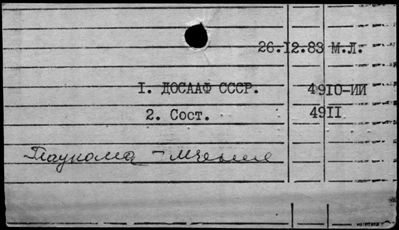 26.12.83 М.Л.
1. ДОСААФ СССР. 4910-ИИ
2. Сост. 4911